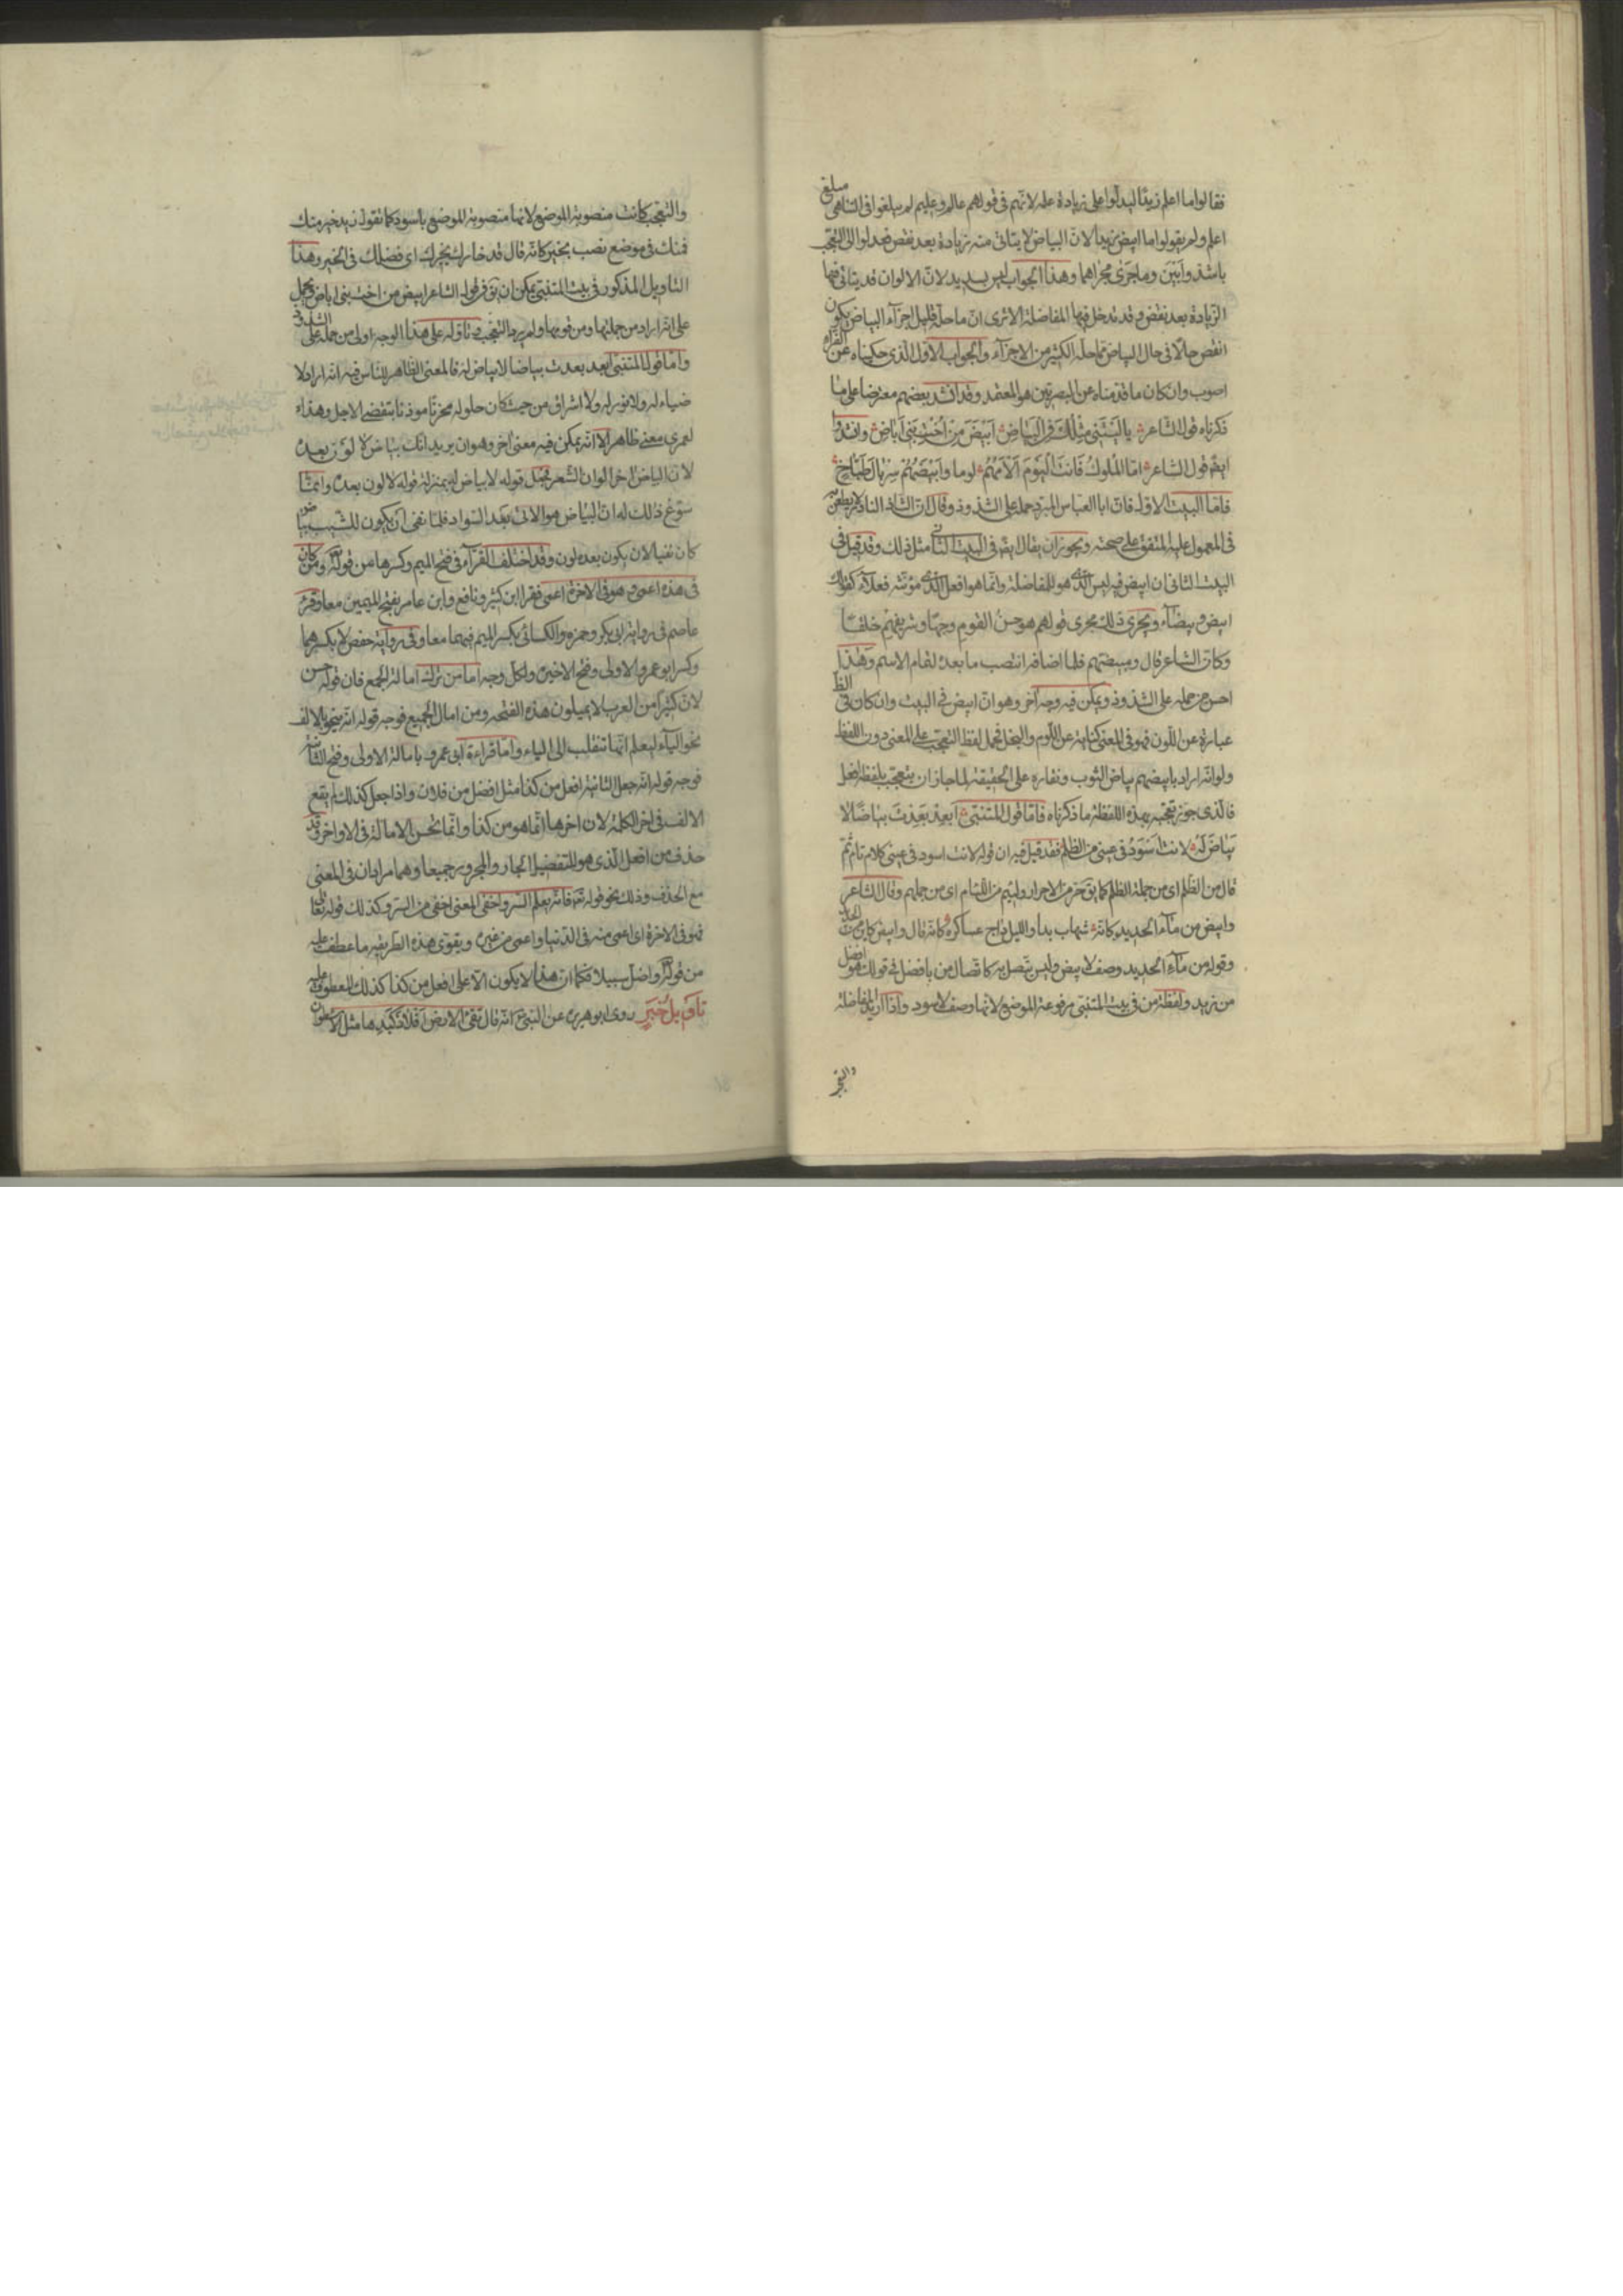 فقالوا ما اعلم زيدًا ليدلوا على زيادة علمه لانّهم فى قولهم عالم وعليم لم يبلغوا فى التناهى مبلغ
اعلم ولم يقولوا ما ابيض زيدا لانّ البياض لا يتاتى منه زيادة بعد نقص فعدلوا الى التعجّب
باشدّ وابين وما جرى مجراهما وهذا الجواب ليس بسديد لانّ الالوان قد يتاتى فيها
الزّيادة بعد نقص وقد تدخل فيها المفاضلة الا ترى انّ ما حلّه قليل اجزاء البياض يكون
انقص حالًا فى حال البياض ممّا حلّه الكثير من الاجزاء والجواب الاوّل الّذى حكيناه عن الفرّاء
اصوب وان كان ما قدّمناه عن البصريّين هو المعتمد وقد انشد بعضهم معترضا على ما
ذكرناه قول الشّاعر يا ليتنى مثلك فى البياض ابيض من اخت بنى اباض وانشدوا
ايضًا قول الشاعر امّا الملوك فانت اليوم الأمهم لوما وابيضهم سربال طبّاخ
فامّا البيت الاوّل فانّ ابا العباس المبرّد حمله على الشذوذ وقال انّ الشاذ النادر لا يطعن
فى المعمول عليه المتفق على صحته ويجوز ان يقال ايضا فى البيت الثانى مثل ذلك وقد قيل فى
البيت الثانى ان ابيض فيه ليس الّذى هو للمفاضلة وانّما هو افعل الّذى مؤنّثه فعلاء كقولك
ابيض وبيضاء ويجرى ذلك مجرى قولهم هو حسن القوم وجهًا وشريفهم خلقًا
وكانّ الشاعر قال ومبيضهم فلما اضافه انتصب ما بعده لتمام الاسم وهذا
احسن من حمله على الشذوذ ويمكن فيه وجه آخر وهو انّ ابيض فى البيت وان كان فى الظا
عبارة عن اللّون فهو فى المعنى كناية عن اللّوم والبخل فحمل لفظ التعجّب على المعنى دون اللفظ
ولو انّه اراد بابيضهم بياض الثوب ونقاءه على الحقيقة لما جاز ان يتعجّب بلفظه افعل
فالّذى جوّز تعجّبه بهذه اللفظة ما ذكرناه فامّا قول المتنبّى ابعد بعدت بياضًا لا
بياض له لانت اسود فى عينى من الظلم فقد قيل فيه ان قوله لانت اسود فى عينى كلام تام ثمّ
قال من الظلم اى من جملة الظلم كما يقال حرّ من الاحرار ولئيم من اللئام اى من جملتهم وقال الشاعر
وابيض من ماء الحديد كانّه شهاب بدا والليل داج عساكره كانّه قال وابيض كاين من الحديد
وقوله من ماء الحديد وصف لابيض وليس يتصل به كاتصال من بافضل فى قولك هو افضل
من زيد ولفظة من فى بيت المتنبى مرفوعة الموضع لانها وصف لاسود واذا اريد المفاضلة
والتعجب
والتعجّب كانت منصوبة الموضع لانها منصوبة الموضع باسود كما تقول زيد خير منك
فمنك فى موضع نصب بخير كانّه قال قد خارك يخيرك اى فضلك فى الخير وهذا
التاويل المذكور فى بيت المتنبّى يمكن ان يقال فى قول الشاعر ابيض من اخت بنى اباض ويحمل
على انّه اراد من جملتها ومن قومها ولم يرد التعجّب وتاوّله على هذا الوجه اولى من حمله على الشذوذ
وامّا قول المتنبّى ابعد بعدت بياضا لا بياض له فالمعنى الظاهر للنّاس فيه انّه اراد لا
ضياء له ولا نور له ولا اشراق من حيث كان حلوله محزنًا موذنًا بتقضّى الاجل وهذا
لعمرى معنى ظاهر الا انّه يمكن فيه معنى آخر وهو ان يريد انّك بياض لا لون بعده
لانّ البياض آخر الوان الشعر فجعل قوله لا بياض له بمنزلة قوله لا لون بعده وانّما
سوّغ ذلك له انّ البياض هو الاتى بعد السّواد فلمّا نفى ان يكون للشّيب بياض
كان نفيا لان يكون بعده لون وقد اختلف القرّاء فى فتح الميم وكسرها من قوله ومن كان
فى هذه اعمى فهو فى الاخرة اعمى فقرا ابن كثير ونافع وابن عامر بفتح الميمين معا وقرء
عاصم فى رواية ابى بكر وحمزه والكسائى بكسر الميم فيهما معا وفى رواية حفص لا يكسرهما
وكسر ابو عمرو الاولى وفتح الاخيرة ولكل وجه اما من ترك امالة الجميع فان قوله حسن
لانّ كثيرًا من العرب لا يميلون هذه الفتحه ومن امال الجميع فوجه قوله انّه ينحو بالالف
نحو الياء ليعلم انّها تنقلب الى الياء وامّا قراءة ابى عمرو بامالة الاولى وفتح الثانية
فوجه قوله انّه جعل الثانية افعل من كذا مثل افضل من فلان واذا جعل كذلك لم يقع
الالف فى اخر الكلمة لان اخرها انّما هو من كذا وانّما تحسن الامالة فى الاواخر وقد
حذف من افعل الّذى هو للتفضيل الجار والمجرور جميعا وهما مرادان فى المعنى
مع الحذف وذلك نحو قوله تعالى فانّه يعلم السّر واخفى المعنى اخفى من السّر وكذلك قوله تعالى
فهو فى الاخرة اعمى اى اعمى منه فى الدّنيا واعمى من غيره ويقوى هذه الطريقه ما عطف عليه
من قوله واضلّ سبيلا فكما انّ هذا لا يكون الّا على افعل من كذا كذلك المعطوف عليه
تاويل خبر روى ابو هريره عن النبى انّه قال تقئ الارض افلاذ كبدها مثل الاسطوان